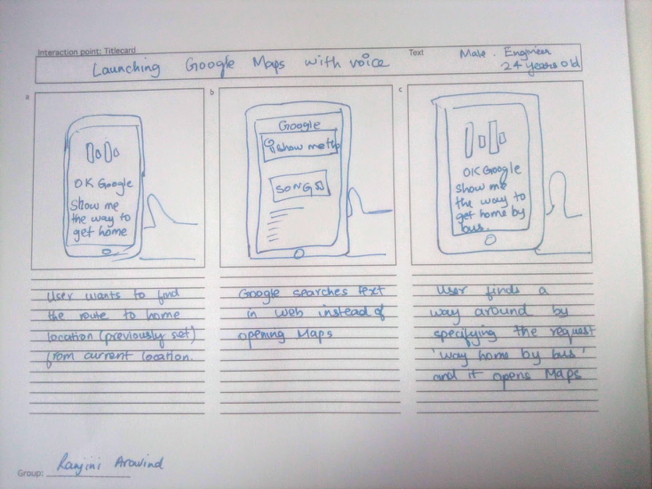 Interaction point: Titlecard
Launching Google Maps with voice
Text
Male. Engineer
24 years old
a
OK Google
Show me
the way to
get home
User wants to find
the route to home
location (previously set)
from current location.
b
Google
show me the
SONG
Google searches text
in web instead of
opening Maps
c
OK Google
show me
the way to
get home by
bus.
User finds a
way around by
specifying the request
'way home by bus'
and it opens Maps
Group: Ranjini Aravind